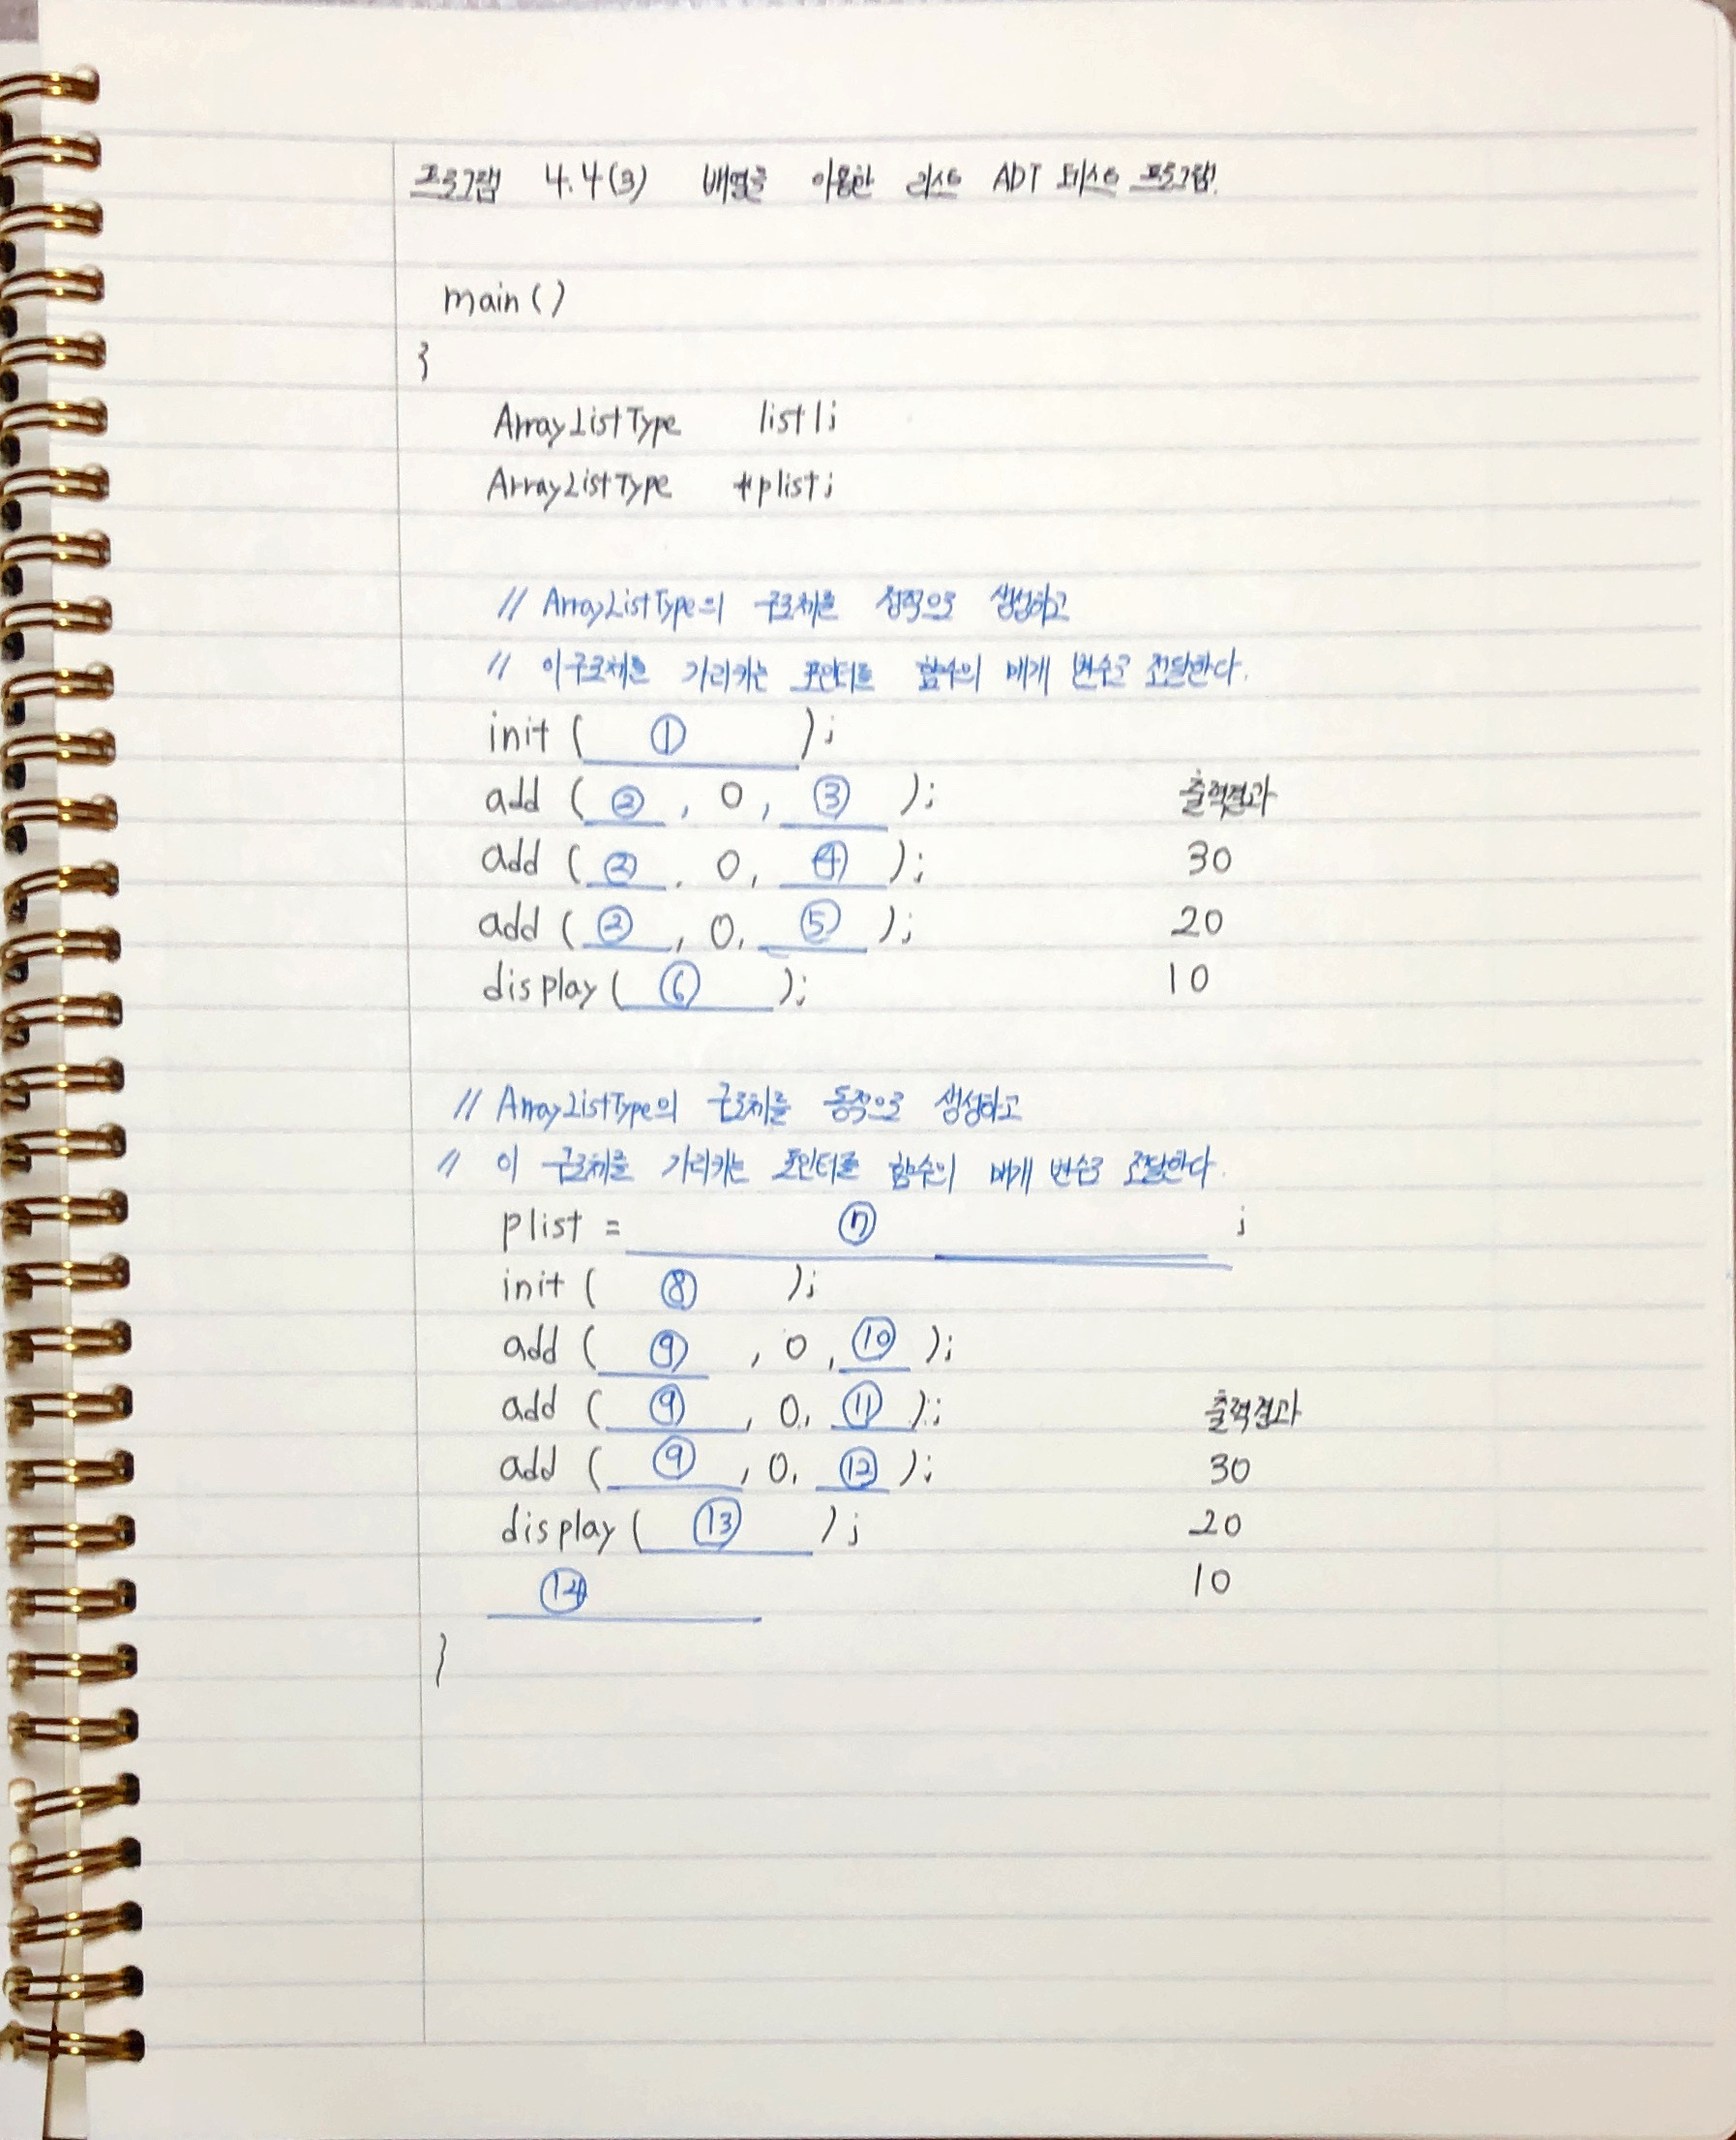 프로그램 4.4(3) 배열을 이용한 리스트 ADT 테스트 프로그램
main()
{
ArrayListType list1;
ArrayListType *plist;
// ArrayListType의 구조체를 정적으로 생성하고
// 이 구조체를 가리키는 포인터를 함수의 매개 변수로 전달한다.
init ( ① );
add ( ② , 0, ③ ); 출력결과
add ( ② , 0, ④ ); 30
add ( ② , 0, ⑤ ); 20
display( ⑥ ); 10
// ArrayListType의 구조체를 동적으로 생성하고
// 이 구조체를 가리키는 포인터를 함수의 매개 변수로 전달한다.
plist = ⑦ ;
init ( ⑧ );
add ( ⑨ , 0, ⑩ );
add ( ⑨ , 0, ⑪ ); 출력결과
add ( ⑨ , 0, ⑫ ); 30
display( ⑬ ); 20
⑭ 10
}